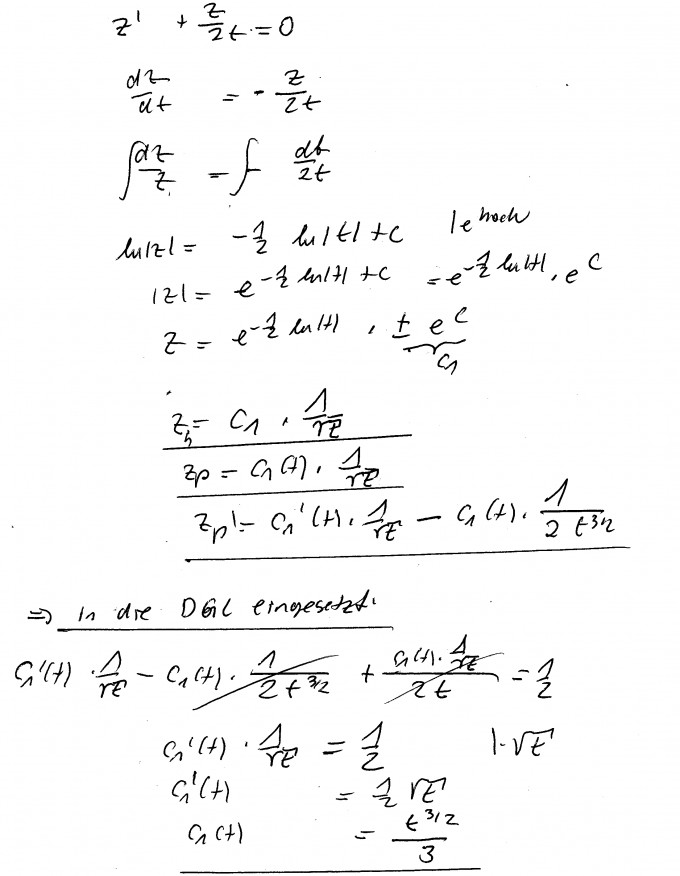 z' + z/2t = 0
dz/dt = - z/2t
∫ dz/z = ∫- dt/2t
ln|z| = -1/2 ln|t| + c |e hoch
|z| = e^(-1/2 ln|t| + c) = e^(-1/2 ln|t|) · e^c
z = e^(-1/2 ln|t|) · ± e^c
c₁
z_h = c₁ · 1/√t
zp = c₁(t) · 1/√t
zp' = c₁'(t) · 1/√t - c₁(t) · 1/(2 t^(3/2))
=> in die DGL eingesetzt:
c₁'(t) · 1/√t - c₁(t) · 1/(2 t^(3/2)) + (c₁(t) · 1/√t)/(2t) = 1/2
c₁'(t) · 1/√t = 1/2 |·√t
c₁'(t) = 1/2 √t
c₁(t) = t^(3/2)/3